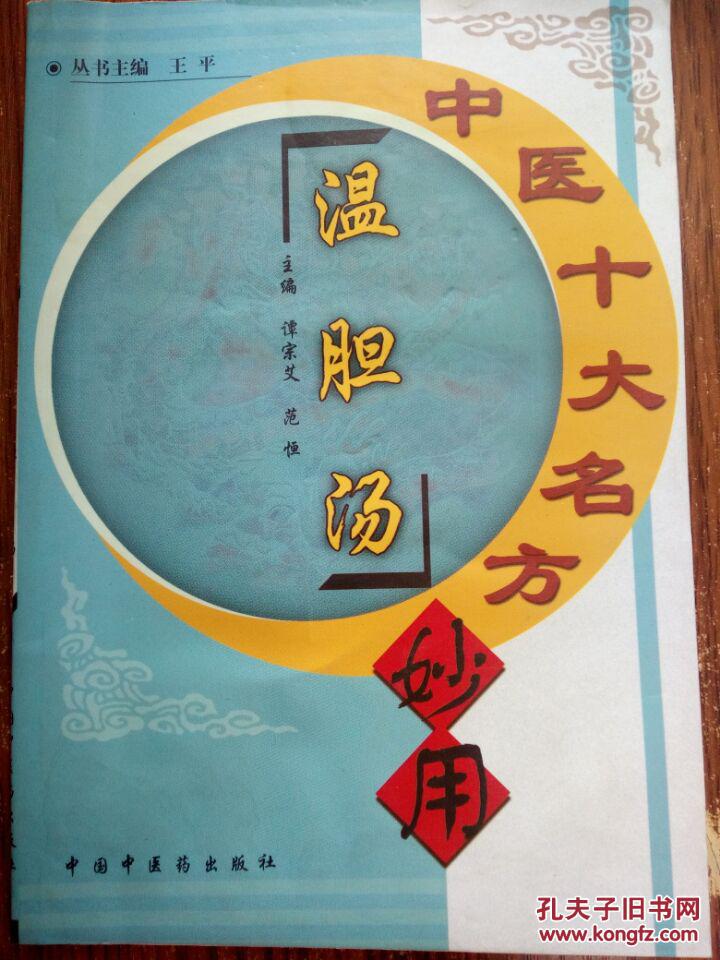 丛书主编 王平
中医十大名方
妙用
温胆汤
主编 谭宗艾 范恒
中国中医药出版社
孔夫子旧书网
www.kongfz.com